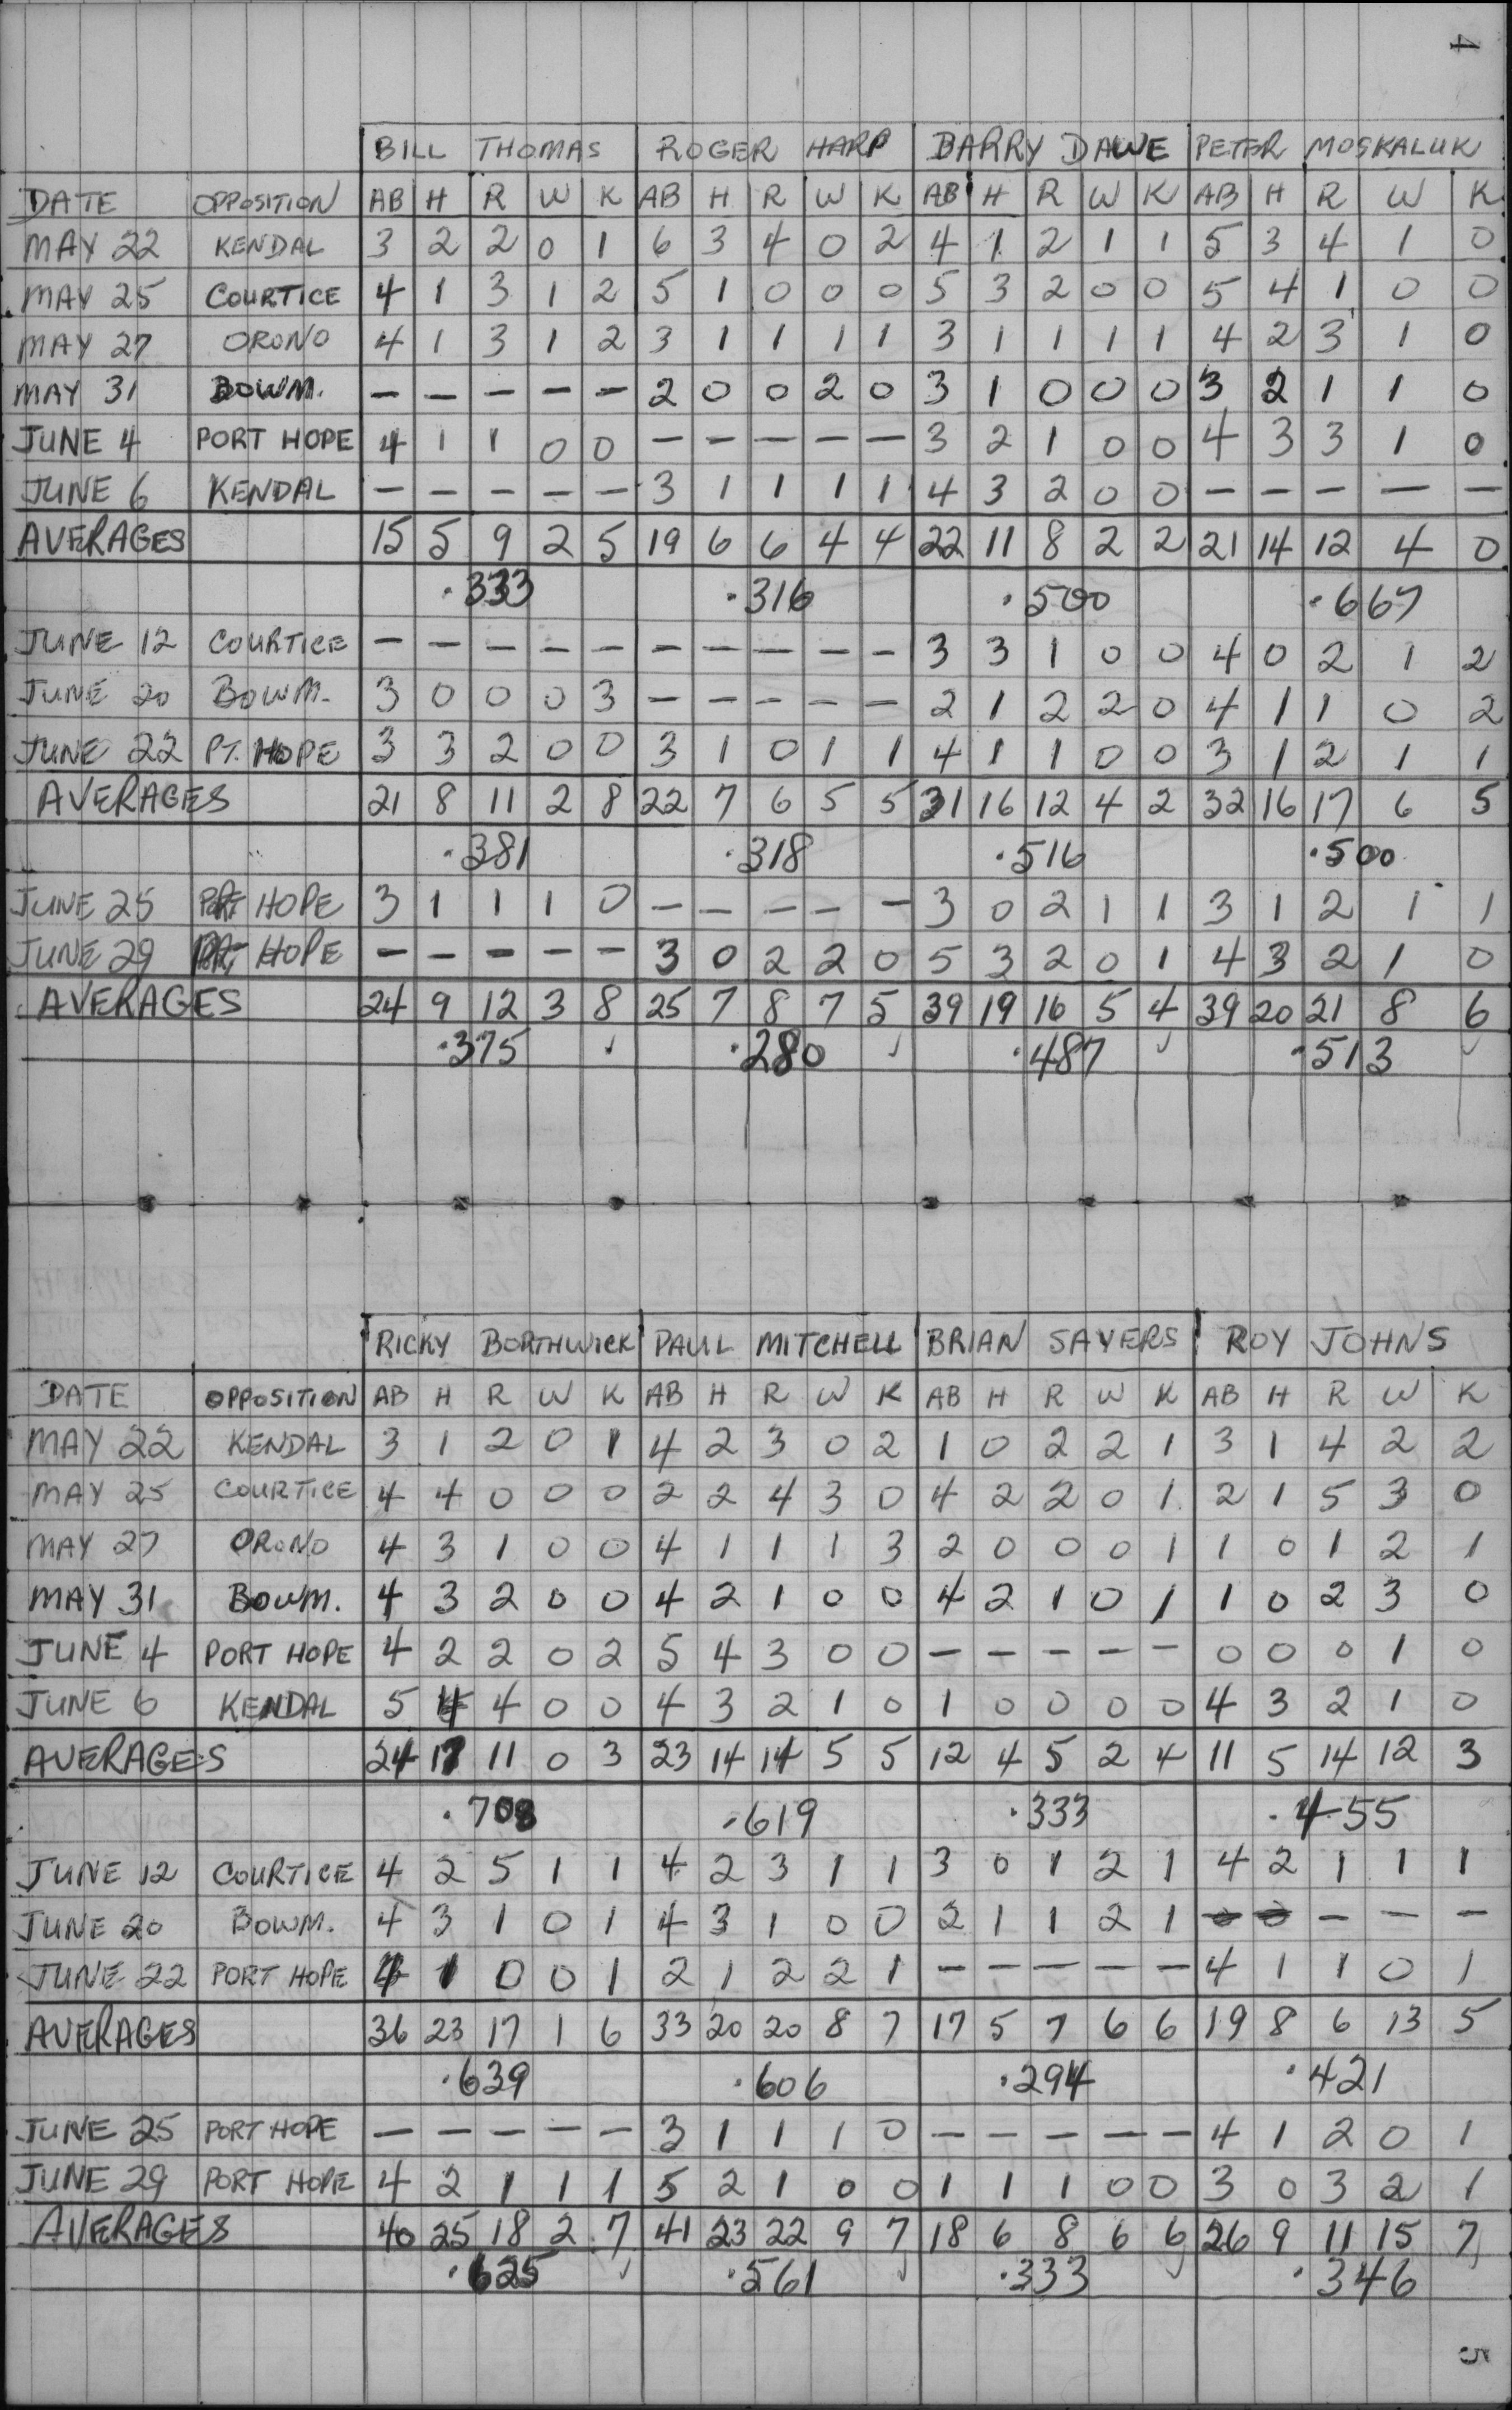 4
BILL THOMAS ROGER HARP BARRY DAWE PETER MOSKALUK
DATE OPPOSITION AB H R W K AB H R W K AB H R W K AB H R W K
MAY 22 KENDAL 3 2 2 0 1 6 3 4 0 2 4 1 2 1 1 5 3 4 1 0
MAY 25 COURTICE 4 1 3 1 2 5 1 0 0 0 5 3 2 0 0 5 4 1 0 0
MAY 27 ORONO 4 1 3 1 2 3 1 1 1 1 3 1 1 1 1 4 2 3 1 0
MAY 31 BOWM. — — — — — 2 0 0 2 0 3 1 0 0 0 3 2 1 1 0
JUNE 4 PORT HOPE 4 1 1 0 0 — — — — — 3 2 1 0 0 4 3 3 1 0
JUNE 6 KENDAL — — — — — 3 1 1 1 1 4 3 2 0 0 — — — — —
AVERAGES 15 5 9 2 5 19 6 6 4 4 22 11 8 2 2 21 14 12 4 0
.333 .316 .500 .667
JUNE 12 COURTICE — — — — — — — — — — 3 3 1 0 0 4 0 2 1 2
JUNE 20 BOWM. 3 0 0 0 3 — — — — — 2 1 2 2 0 4 1 1 0 2
JUNE 22 PT. HOPE 3 3 2 0 0 3 1 0 1 1 4 1 1 0 0 3 1 2 1 1
AVERAGES 21 8 11 2 8 22 7 6 5 5 31 16 12 4 2 32 16 17 6 5
.381 .318 .516 .500
JUNE 25 PORT HOPE 3 1 1 1 0 — — — — — 3 0 2 1 1 3 1 2 1 1
JUNE 29 HOPE — — — — — 3 0 2 2 0 5 3 2 0 1 4 3 2 1 0
AVERAGES 24 9 12 3 8 25 7 8 7 5 39 19 16 5 4 39 20 21 8 6
.375 ✓ .280 ✓ .487 ✓ .513 ✓
RICKY BORTHWICK PAUL MITCHELL BRIAN SAYERS ROY JOHNS
DATE OPPOSITION AB H R W K AB H R W K AB H R W K AB H R W K
MAY 22 KENDAL 3 1 2 0 1 4 2 3 0 2 1 0 2 2 1 3 1 4 2 2
MAY 25 COURTICE 4 4 0 0 0 2 2 4 3 0 4 2 2 0 1 2 1 5 3 0
MAY 27 ORONO 4 3 1 0 0 4 1 1 1 3 2 0 0 0 1 1 0 1 2 1
MAY 31 BOWM. 4 3 2 0 0 4 2 1 0 0 4 2 1 0 1 1 0 2 3 0
JUNE 4 PORT HOPE 4 2 2 0 2 5 4 3 0 0 — — — — — 0 0 0 1 0
JUNE 6 KENDAL 5 4 4 0 0 4 3 2 1 0 1 0 0 0 0 4 3 2 1 0
AVERAGES 24 17 11 0 3 23 14 14 5 5 12 4 5 2 4 11 5 14 12 3
.708 .619 .333 .455
JUNE 12 COURTICE 4 2 5 1 1 4 2 3 1 1 3 0 1 2 1 4 2 1 1 1
JUNE 20 BOWM. 4 3 1 0 1 4 3 1 0 0 2 1 1 2 1 — — — — —
JUNE 22 PORT HOPE 4 1 0 0 1 2 1 2 2 1 — — — — — 4 1 1 0 1
AVERAGES 36 23 17 1 6 33 20 20 8 7 17 5 7 6 6 19 8 6 13 5
.639 .606 .294 .421
JUNE 25 PORT HOPE — — — — — 3 1 1 1 0 — — — — — 4 1 2 0 1
JUNE 29 PORT HOPE 4 2 1 1 1 5 2 1 0 0 1 1 1 0 0 3 0 3 2 1
AVERAGES 40 25 18 2 7 41 23 22 9 7 18 6 8 6 6 26 9 11 15 7
.625 ✓ .561 ✓ .333 ✓ .346
5